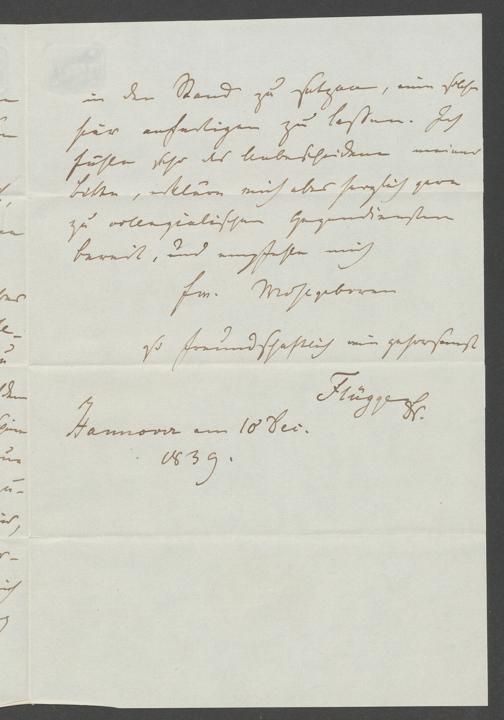 in den Stand zu setzen, eine solche
hier anfertigen zu lassen. Ich
fühle sehr das Unbescheidene meiner
Bitte, erkläre mich aber herzlich gern
zu collegialischen Gegendiensten
bereit, und empfehle mich
Ew. Wohlgeboren
so freundschaftlich wie gehorsamst
Flügge Dr.
Hannover am 18 Dec.
1839.